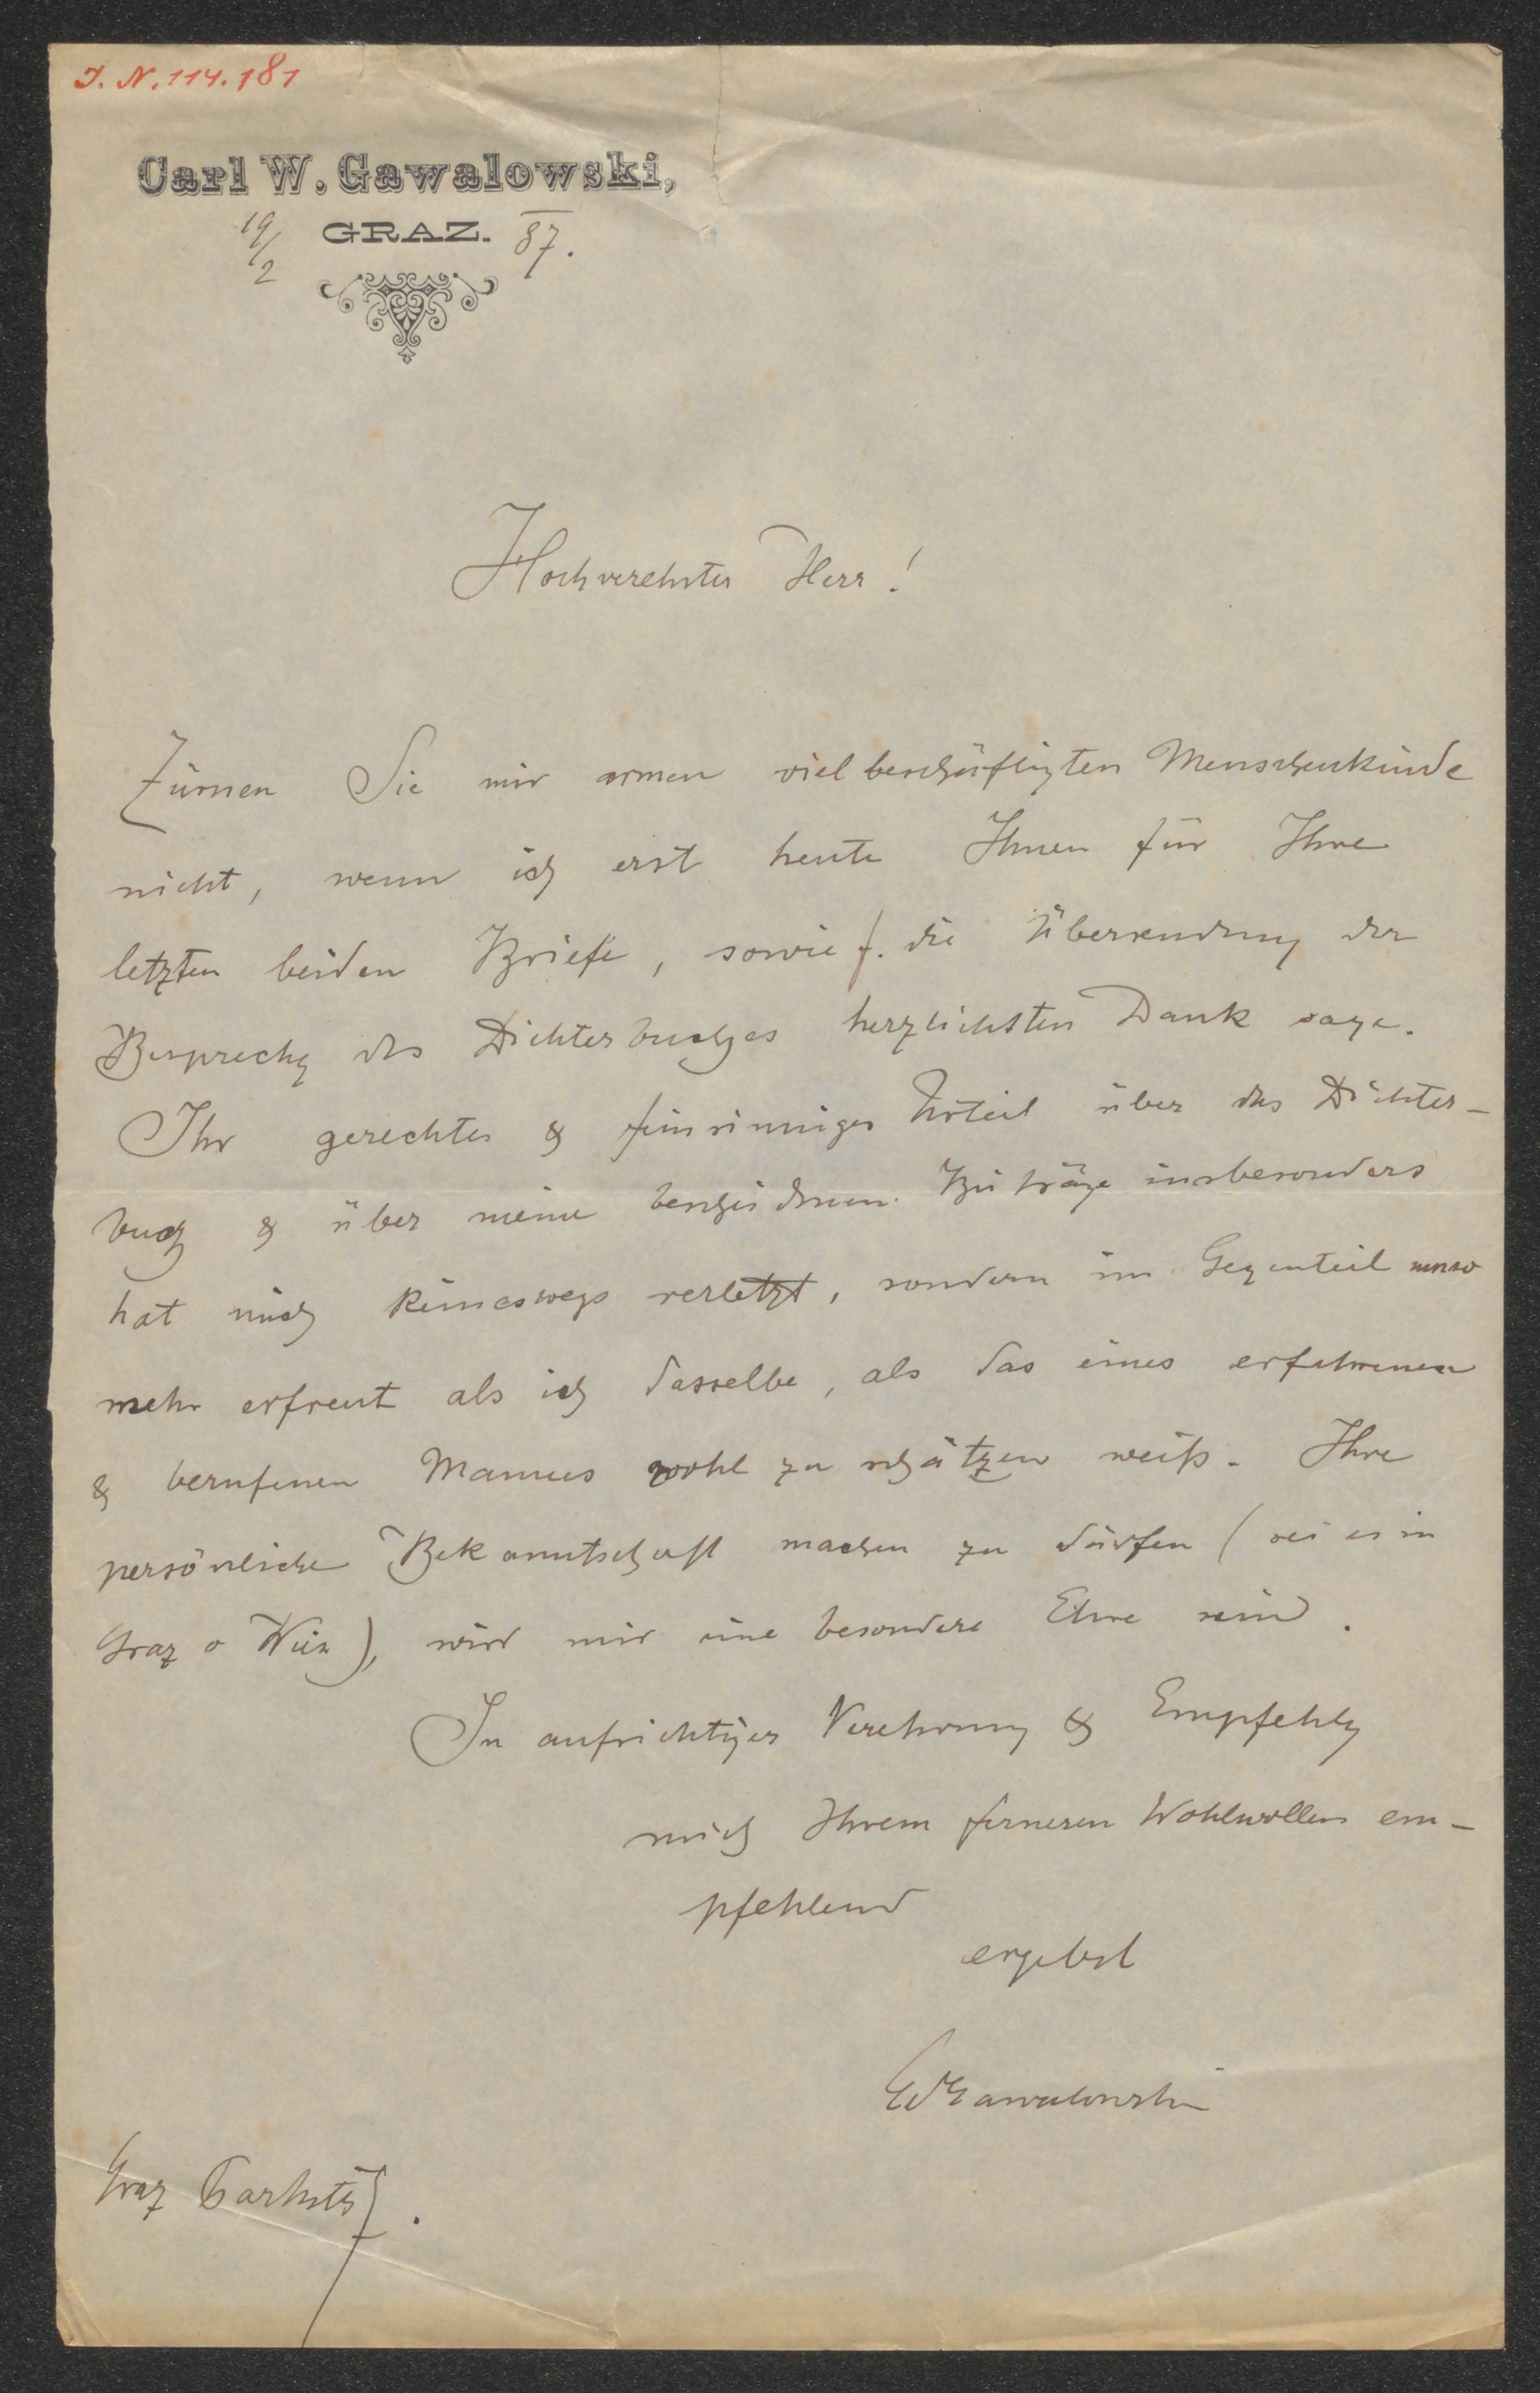 J. N. 114.181
Carl W. Gawalowski,
19/2 GRAZ. 87.
Hochverehrter Herr!
Zürnen Sie mir armen vielbeschäftigten Menschenkinde
nicht, wenn ich erst heute Ihnen für Ihre
letzten beiden Briefe, sowie f. die Übersendung der
Besprechg des Dichterbuches herzlichsten Dank sage.
Ihr gerechtes & feinsinniges Urteil über das Dichter-
buch & über meine bescheidenen Beiträge insbesonders
hat mich keineswegs verletzt, sondern im Gegenteil umso
mehr erfreut als ich dasselbe, als das eines erfahrenen
& berufenen Mannes wohl zu schätzen weiß. Ihre
persönliche Bekanntschaft machen zu dürfen (sei es in
Graz o Wien), wird mir eine besondere Ehre sein.
In aufrichtiger Verehrung & Empfehlg
mich Ihrem ferneren Wohlwollen em-
pfehlend
ergebst
CWGawalowski
Graz